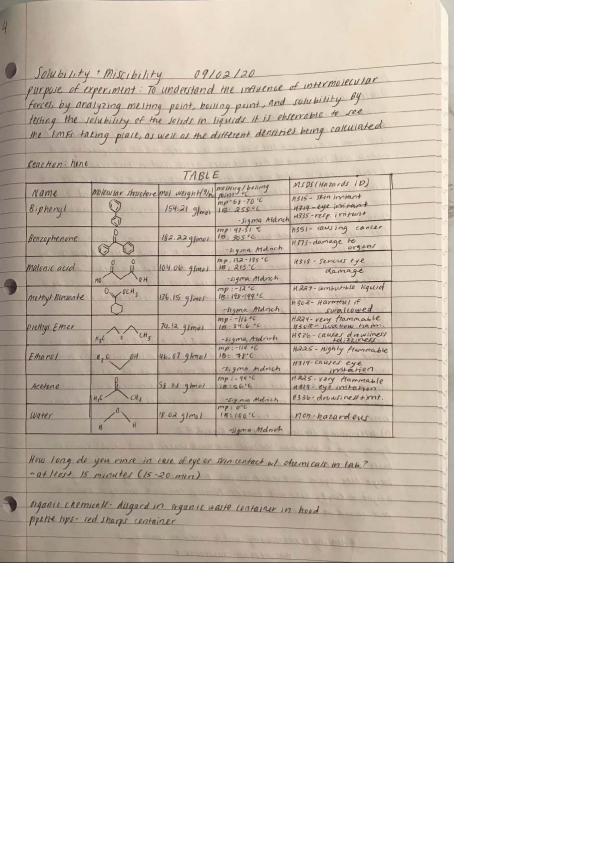 4
Solubility + Miscibility 09/02/20
purpose of experiment: To understand the influence of intermolecular
forces by analyzing melting point, boiling point, and solubility. By
testing the solubility of the solids in liquids it is observable to see
the IMFs taking place, as well as the different densities being calculated
Reaction: None
TABLE
Name Molecular structure mol weight (g/mol) melting/boiling point: °C MSDS (Hazards ID)
Biphenyl 154.21 g/mol mp: 68-70°C H315- Skin irritant
IB: 255°C H319- eye irritant
-Sigma Aldrich H335- resp. irritant
Benzophenone O 182.22 g/mol mp: 47-51°C H351- causing cancer
IB: 305°C H373- damage to
-Sigma Aldrich organs
Malonic acid O O HO OH 104.06 g/mol mp: 132-135°C H318- Serious eye
IB: 215°C damage
-Sigma Aldrich
methyl Benzoate O OCH₃ 136.15 g/mol mp: -12°C H227- combustible liquid
IB: 198-199°C H302- Harmful if
-Sigma Aldrich swallowed
Diethyl Ether H₃C O CH₃ 74.12 g/mol mp: -116°C H224- very flammable
IB: 34.6°C H302- swallow harm.
-Sigma Aldrich H336- causes drowsiness
+ dizziness
Ethanol H₃C OH 46.07 g/mol mp: -114°C H225- Highly flammable
IB: 78°C H319- causes eye
-Sigma Aldrich irritation
Acetone O H₃C CH₃ 58.08 g/mol mp: -94°C H225- very flammable
IB: 56°C H319- eye irritation
-Sigma Aldrich H336- drowsiness
Water O H H 18.02 g/mol mp: 0°C non-hazardous
IB: 100°C
-Sigma Aldrich
How long do you rinse in case of eye or skin contact w/ chemicals in lab?
- at least 15 minutes (15-20 min)
organic chemicals- disgard in organic waste container in hood
pipette tips- red sharps container